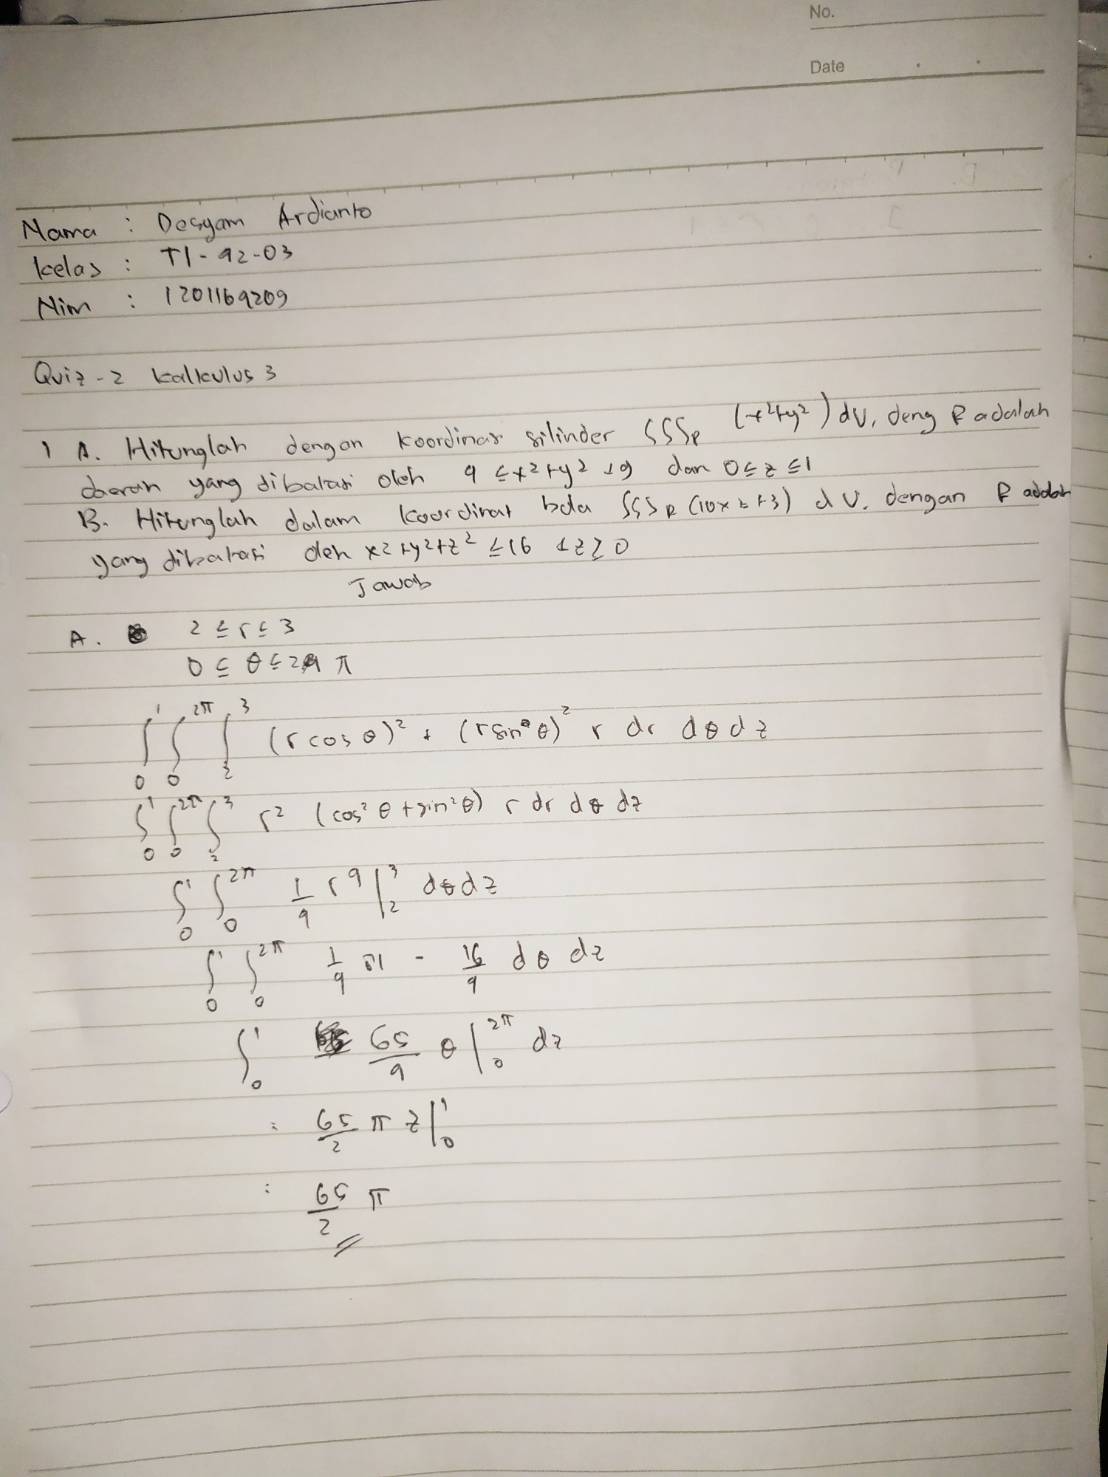 No.
Date
Nama : Desyam Ardianto
Kelas : TI-42-03
Nim : 1201164209
Quiz-2 kalkulus 3
1 A. Hitunglah dengan koordinat silinder ∫∫∫R (x²+y²) dV, deng R adalah
daerah yang dibatasi oleh 4 ≤ x²+y² ≤ 9 dan 0≤z≤1
B. Hitunglah dalam koordinat bola ∫∫∫R (10xz+3) dV. dengan R adalah
yang dibatasi oleh x2+y2+z² ≤16 z≥0
Jawab
A. 2 ≤ r ≤ 3
0 ≤ θ ≤ 2 π
∫₀¹ ∫₀^2π ∫₂³ (r cos θ)² + (r sin θ)² r dr dθ dz
∫₀¹ ∫₀^2π ∫₂³ r² (cos² θ + sin² θ) r dr dθ dz
∫₀¹ ∫₀^2π 1/4 r⁴ |₂³ dθ dz
∫₀¹ ∫₀^2π 1/4 81 - 16/4 dθ dz
∫₀¹ 65/4 θ |₀^2π dz
: 65/2 π z |₀¹
: 65/2 π